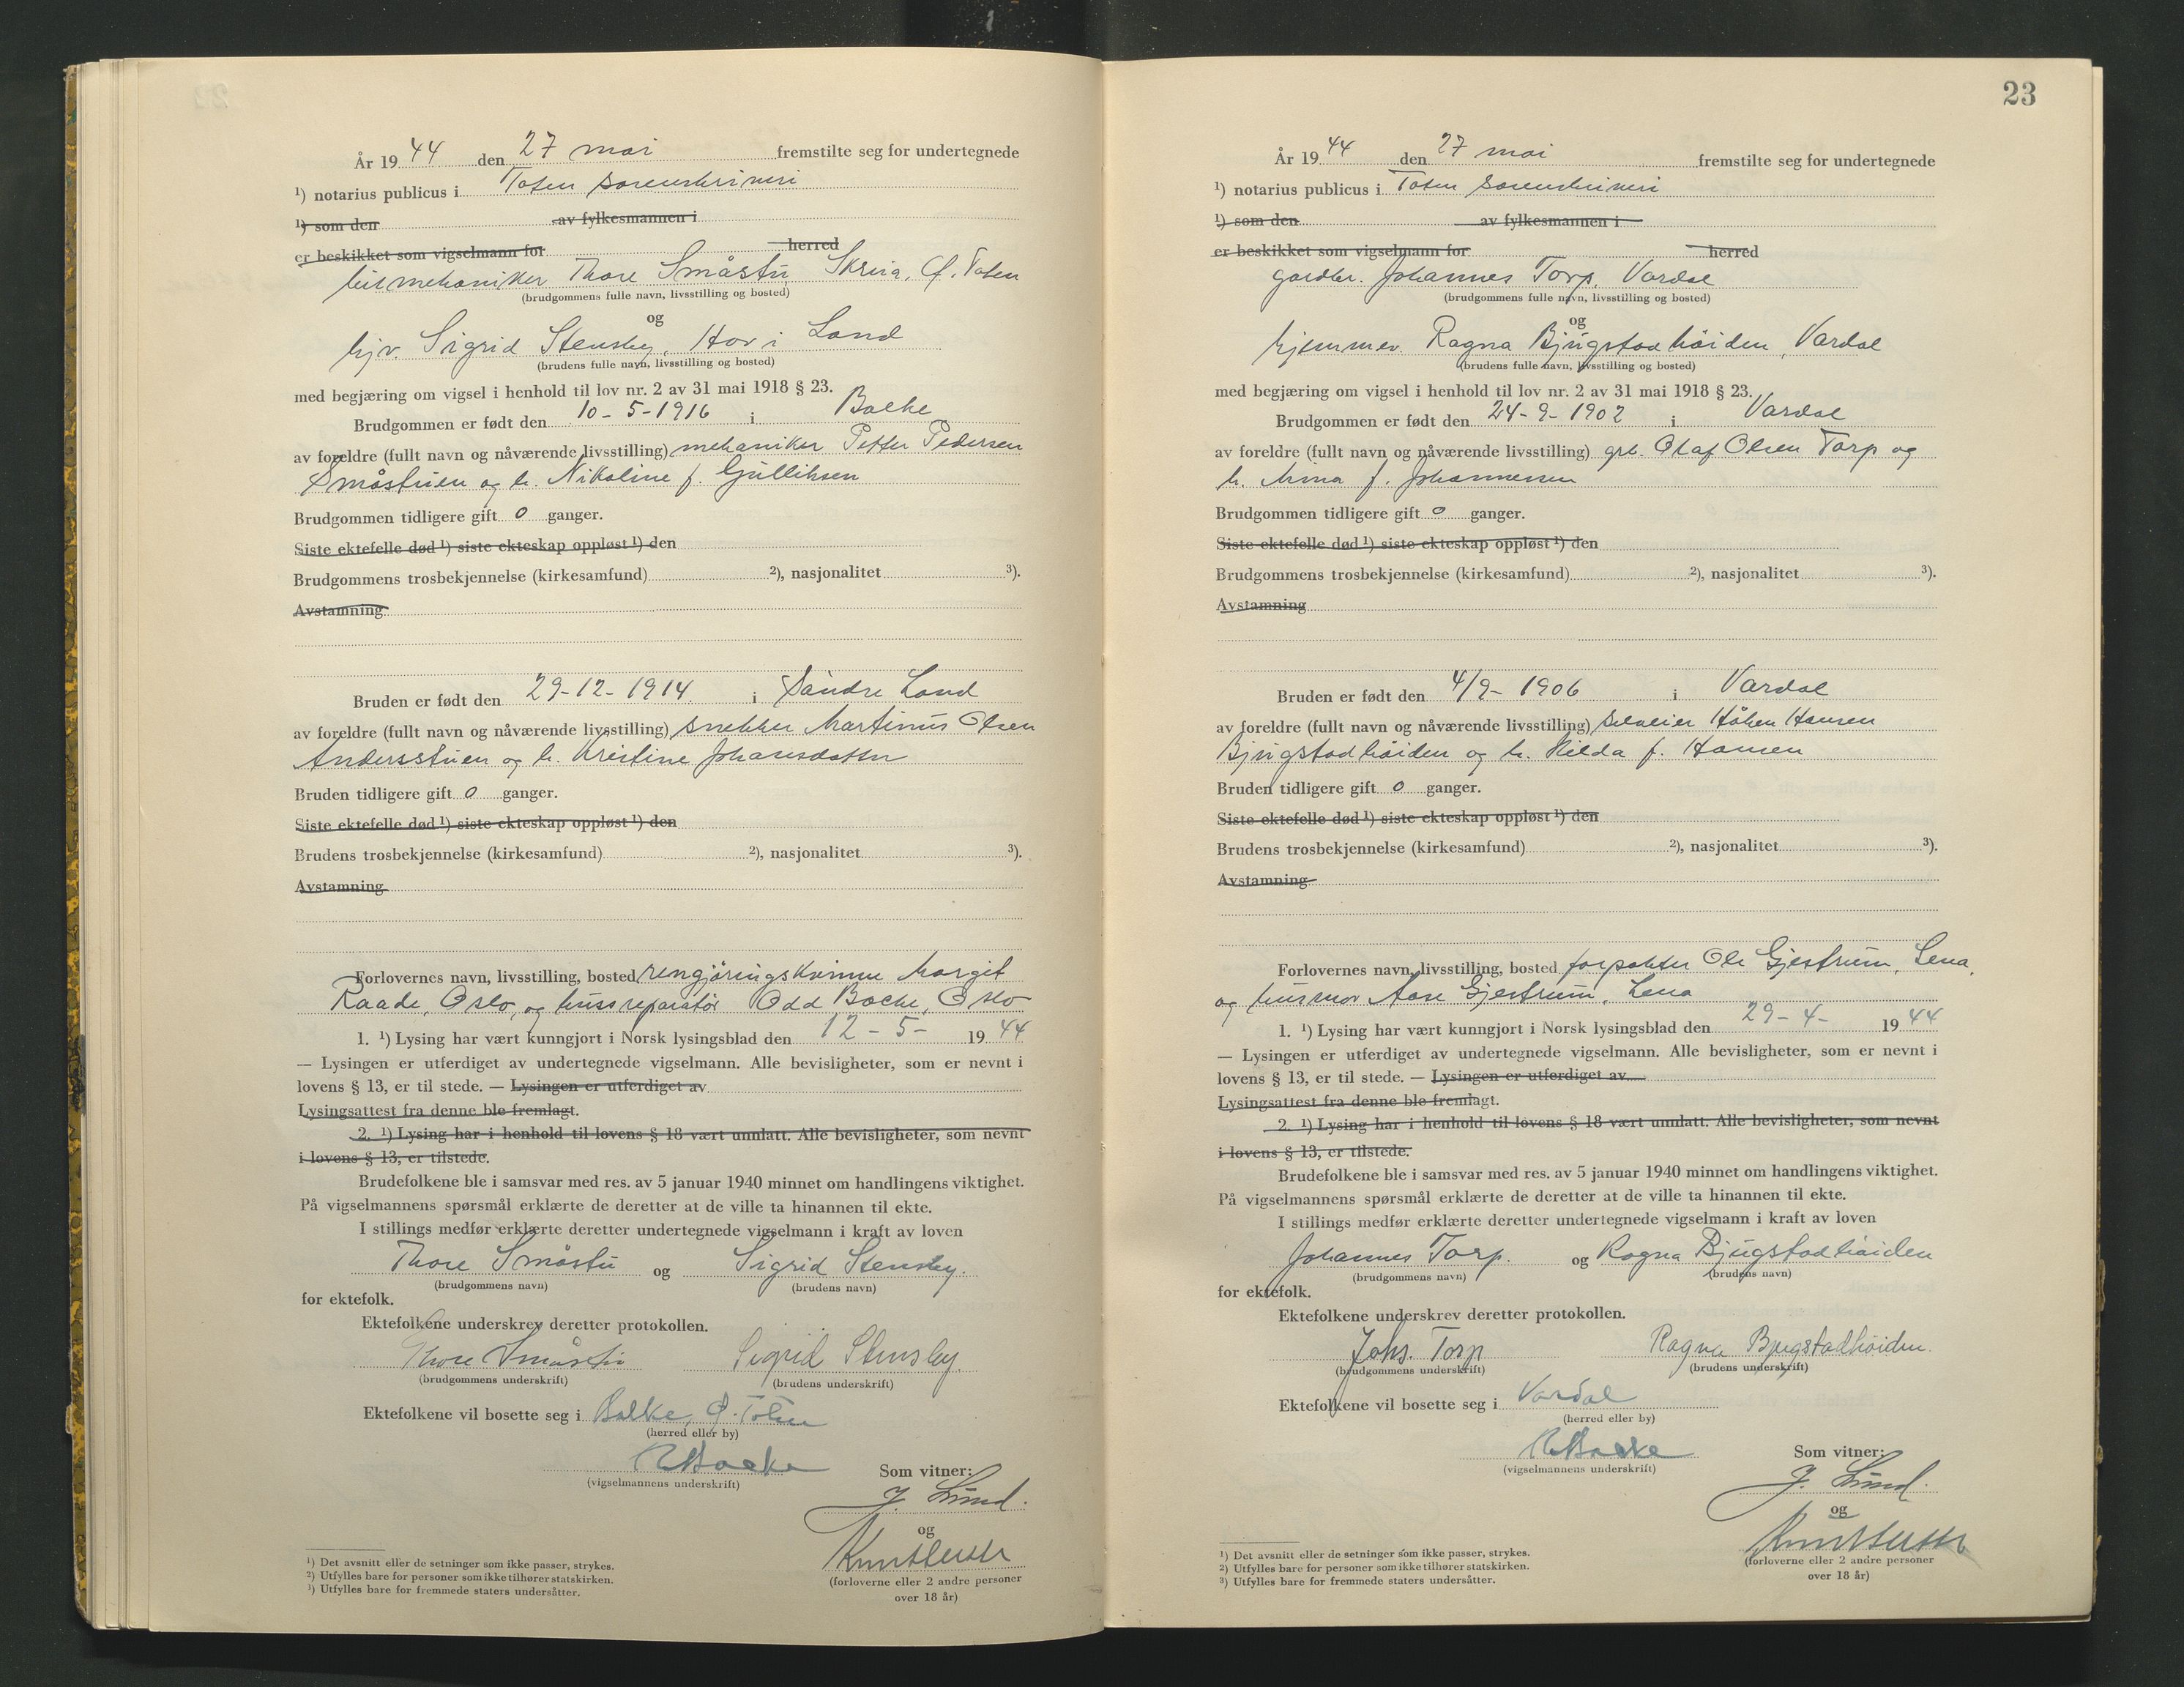 År 19 44 den 27 mai fremstilte seg for undertegnede
¹) notarius publicus i Toten sorenskriveri
¹) som den av fylkesmannen i
er beskikket som vigselmann for herred
bilmekaniker Thore Småstu, Skreia, Ø. Toten
(brudgommens fulle navn, livsstilling og bosted)
og
hjv. Sigrid Stensby, Hov i Land
(brudens fulle navn, livsstilling og bosted)
med begjæring om vigsel i henhold til lov nr. 2 av 31 mai 1918 § 23.
Brudgommen er født den 10-5-1916 i Balke
av foreldre (fullt navn og nåværende livsstilling) mekaniker Petter Pedersen
Småstuen og h. Nikoline f. Gulliksen
Brudgommen tidligere gift 0 ganger.
Siste ektefelle død ¹) siste ekteskap oppløst ¹) den
Brudgommens trosbekjennelse (kirkesamfund) ²), nasjonalitet ³).
Avstamning
Bruden er født den 29-12-1914. i Søndre Land
av foreldre (fullt navn og nåværende livsstilling) snekker Martinus Olsen
Andersstuen og h. Kristine Johansdatter
Bruden tidligere gift 0 ganger.
Siste ektefelle død ¹) siste ekteskap oppløst ¹) den
Brudens trosbekjennelse (kirkesamfund) ²), nasjonalitet ³).
Avstamning
Forlovernes navn, livsstilling, bosted rengjøringskvinne Margit
Raade, Oslo, og bussreparatør Odd Bache, Oslo
1. ¹) Lysing har vært kunngjort i Norsk lysingsblad den 12-5- 19 44
— Lysingen er utferdiget av undertegnede vigselmann. Alle bevisligheter, som er nevnt i
lovens § 13, er til stede. — Lysingen er utferdiget av
Lysingsattest fra denne ble fremlagt.
2. ¹) Lysing har i henhold til lovens § 18 vært unnlatt. Alle bevisligheter, som nevnt
i lovens § 13, er tilstede.
Brudefolkene ble i samsvar med res. av 5 januar 1940 minnet om handlingens viktighet.
På vigselmannens spørsmål erklærte de deretter at de ville ta hinannen til ekte.
I stillings medfør erklærte deretter undertegnede vigselmann i kraft av loven
Thore Småstu og Sigrid Stensby.
(brudgommens navn) (brudens navn)
for ektefolk.
Ektefolkene underskrev deretter protokollen.
Thore Småstu Sigrid Stensby
(brudgommens underskrift) (brudens underskrift)
Ektefolkene vil bosette seg i Balke, Ø. Toten
(herred eller by)
(vigselmannens underskrift)
Som vitner:
J. Lund.
og
(forloverne eller 2 andre personer
over 18 år)
¹) Det avsnitt eller de setninger som ikke passer, strykes.
²) Utfylles bare for personer som ikke tilhører statskirken.
³) Utfylles bare for fremmede staters undersåtter.
23
År 19 44 den 27 mai fremstilte seg for undertegnede
¹) notarius publicus i Toten sorenskriveri
¹) som den av fylkesmannen i
er beskikket som vigselmann for herred
gardbr. Johannes Torp, Vardal
(brudgommens fulle navn, livsstilling og bosted)
og
hjemmev. Ragna Bjugstadhøiden, Vardal
(brudens fulle navn, livsstilling og bosted)
med begjæring om vigsel i henhold til lov nr. 2 av 31 mai 1918 § 23.
Brudgommen er født den 24-9-1902 i Vardal
av foreldre (fullt navn og nåværende livsstilling) grb. Olaf Olsen Torp og
h. Anna f. Johannessen
Brudgommen tidligere gift 0 ganger.
Siste ektefelle død ¹) siste ekteskap oppløst ¹) den
Brudgommens trosbekjennelse (kirkesamfund) ²), nasjonalitet ³).
Avstamning
Bruden er født den 4/9-1906 i Vardal
av foreldre (fullt navn og nåværende livsstilling) selveier Håken Hansen
Bjugstadhøiden og h. Hilda f. Hansen
Bruden tidligere gift 0 ganger.
Siste ektefelle død ¹) siste ekteskap oppløst ¹) den
Brudens trosbekjennelse (kirkesamfund) ²), nasjonalitet ³).
Avstamning
Forlovernes navn, livsstilling, bosted forpakter Ole Gjestrum, Lena,
og husmor Aase Gjestrum, Lena
1. ¹) Lysing har vært kunngjort i Norsk lysingsblad den 29-4- 19 44
— Lysingen er utferdiget av undertegnede vigselmann. Alle bevisligheter, som er nevnt i
lovens § 13, er til stede. — Lysingen er utferdiget av
Lysingsattest fra denne ble fremlagt.
2. ¹) Lysing har i henhold til lovens § 18 vært unnlatt. Alle bevisligheter, som nevnt
i lovens § 13, er tilstede.
Brudefolkene ble i samsvar med res. av 5 januar 1940 minnet om handlingens viktighet.
På vigselmannens spørsmål erklærte de deretter at de ville ta hinannen til ekte.
I stillings medfør erklærte deretter undertegnede vigselmann i kraft av loven
Johannes Torp. og Ragna Bjugstadhøiden
(brudgommens navn) (brudens navn)
for ektefolk.
Ektefolkene underskrev deretter protokollen.
Johs. Torp Ragna Bjugstadhøiden.
(brudgommens underskrift) (brudens underskrift)
Ektefolkene vil bosette seg i Vardal
(herred eller by)
(vigselmannens underskrift)
Som vitner:
J. Lund.
og
(forloverne eller 2 andre personer
over 18 år)
¹) Det avsnitt eller de setninger som ikke passer, strykes.
²) Utfylles bare for personer som ikke tilhører statskirken.
³) Utfylles bare for fremmede staters undersåtter.